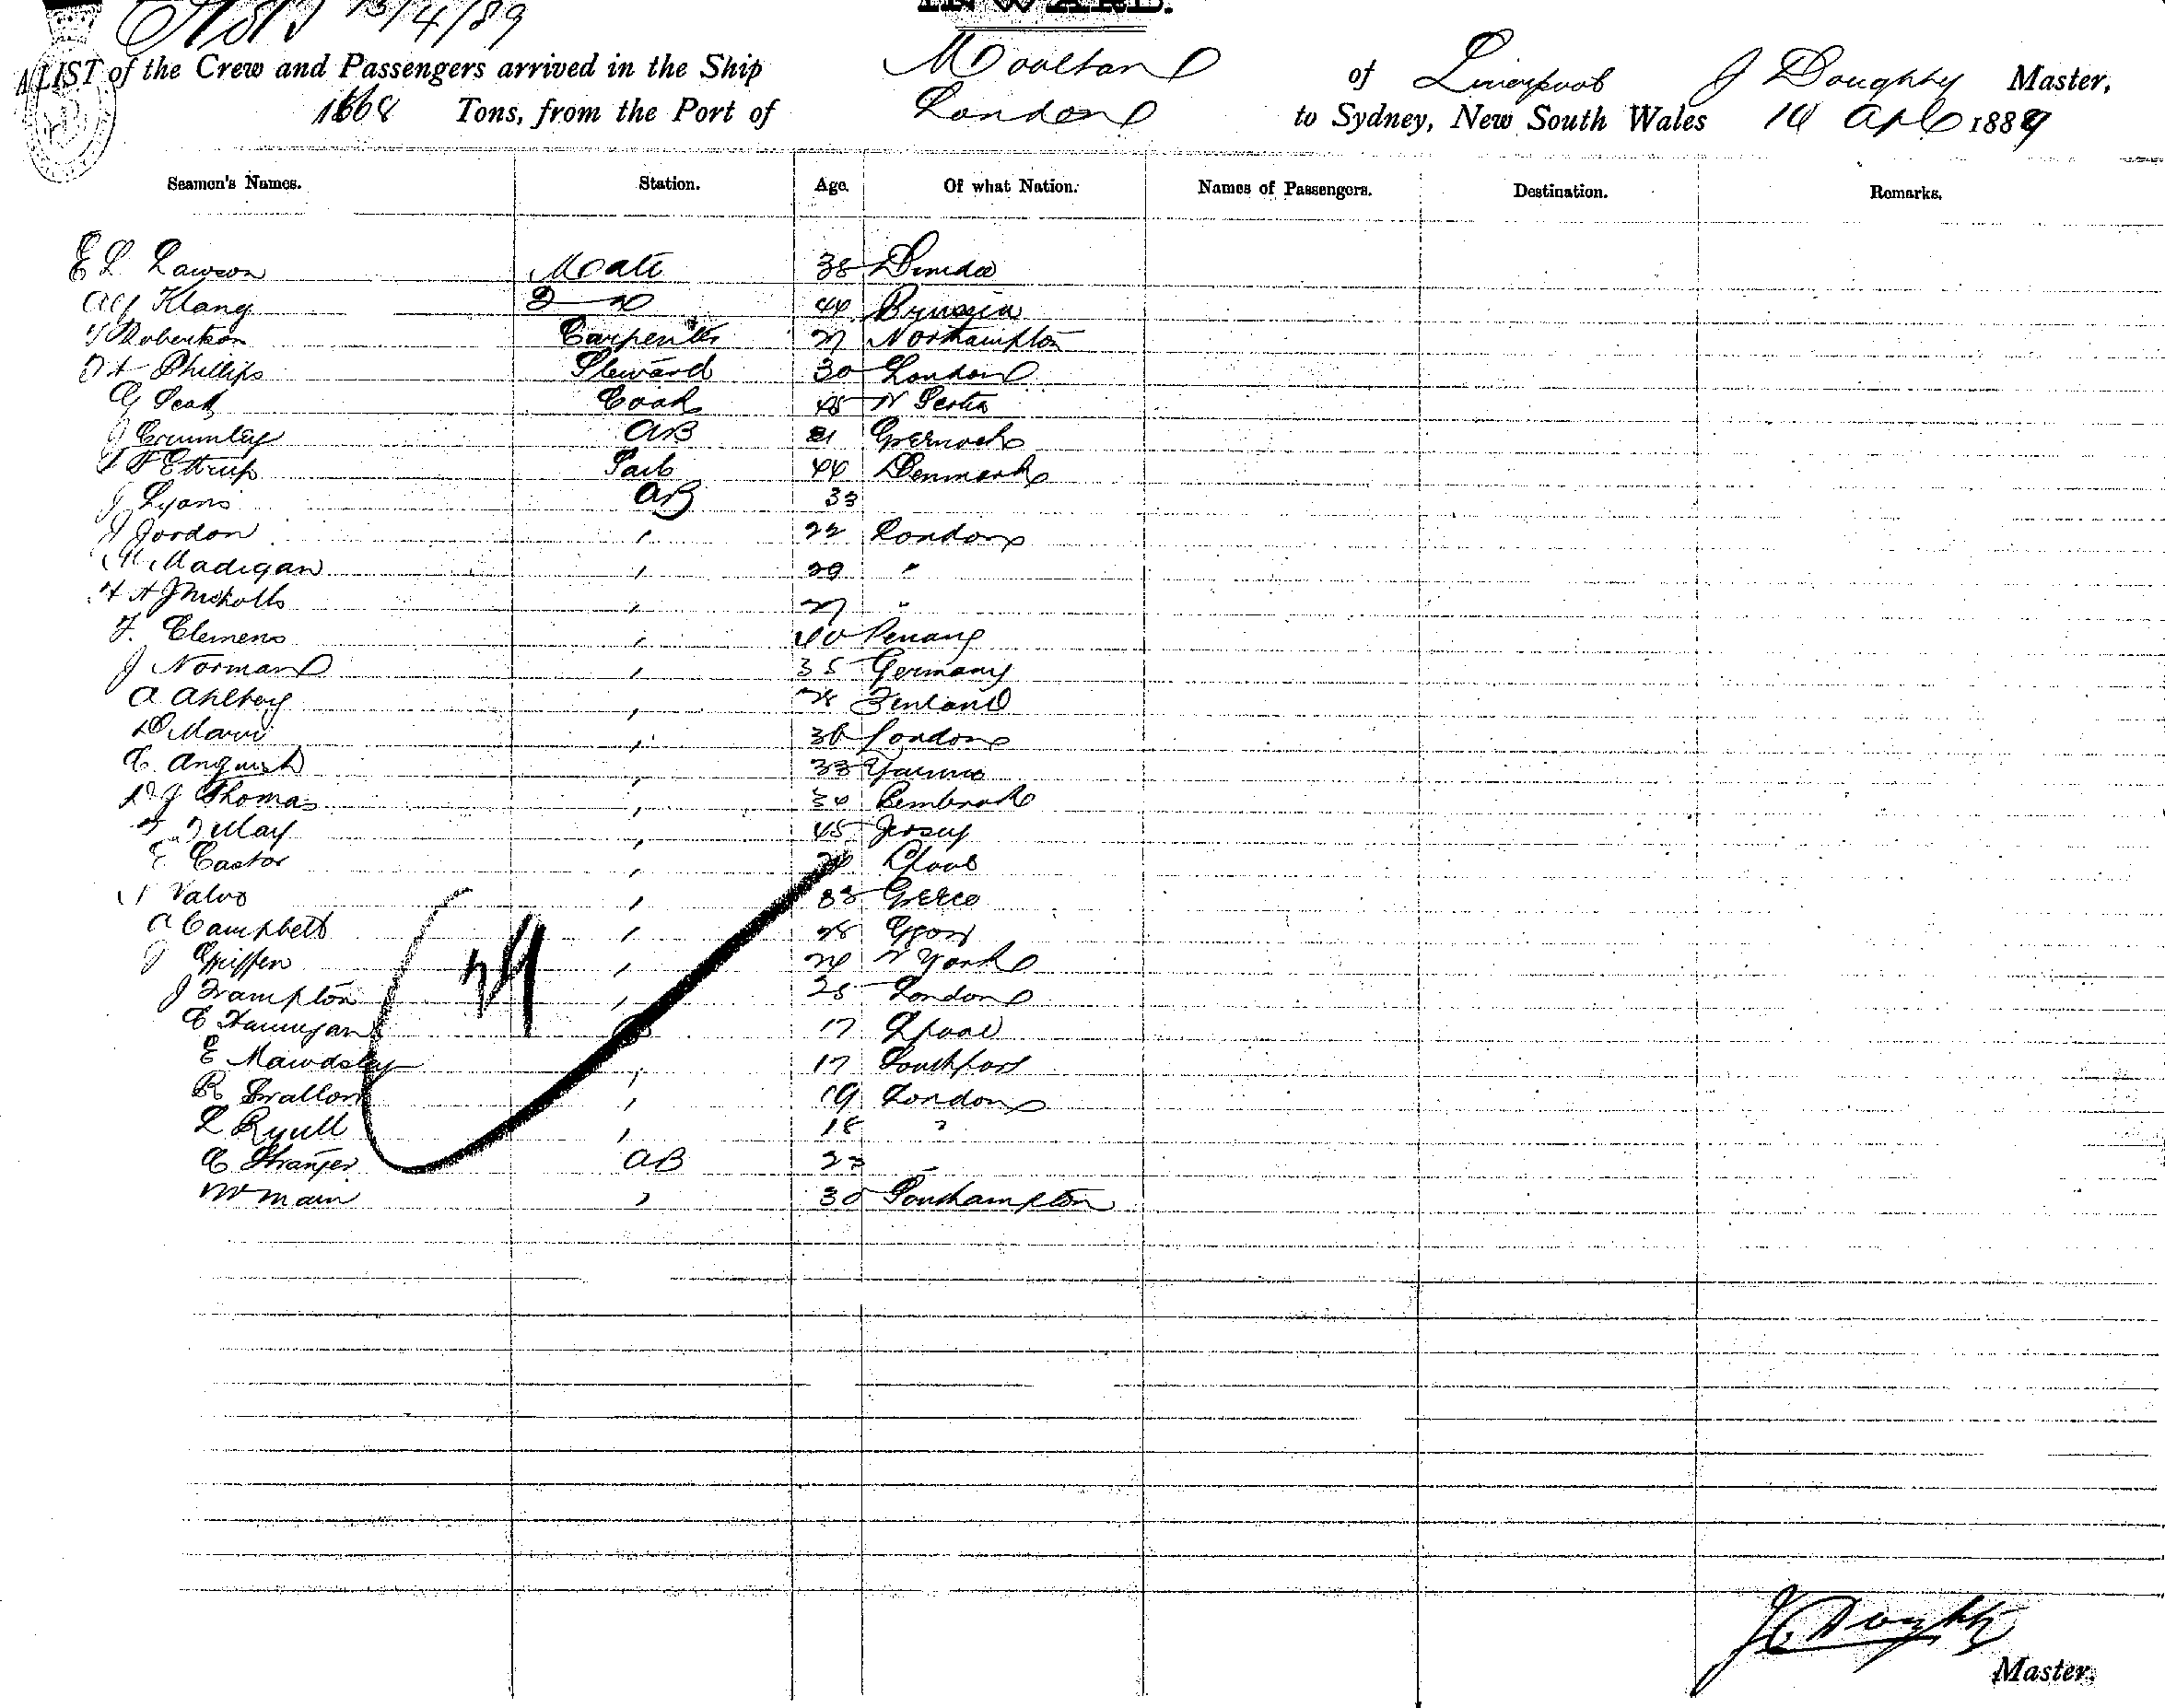 13/4/89
INWARD.
A LIST of the Crew and Passengers arrived in the Ship Mooltan of Liverpool J Doughty Master,
1668 Tons, from the Port of London to Sydney, New South Wales 10 Apl 1889
Seamen's Names. Station. Age. Of what Nation. Names of Passengers. Destination. Remarks.
E L Lawson Mate 38 Dundee
Klang 2nd 44 Prussia
Robertson Carpenter 27 Northampton
Phillips Steward 30 London
G Cook 48 N Scotia
J Crumley AB 21 Greenock
Ettrup Sail 44 Denmark
J Lyons AB 33
J Jordon " 22 London
M Madigan " 29 "
H A J Nicholls " 27 "
F. Clemens " 40 Penang
J Norman " 35 Germany
A Ahlberg " 28 Finland
" 36 London
C. Anguish " 33
D J Thomas " 34 Pembroke
May " 45 Jersey
E Castor " Lpool
Valvo " 33 Greece
A Campbell " 28
J Griffen " 24 N York
J Frampton " 25 London
C Hannigan 17 Lpool
E Mawdsley " 17 Southport
R Strallon " 19 London
L Ryull " 18 "
C Stranger AB 23 "
W Main " 30 Southampton
29
J C Doughty
Master.